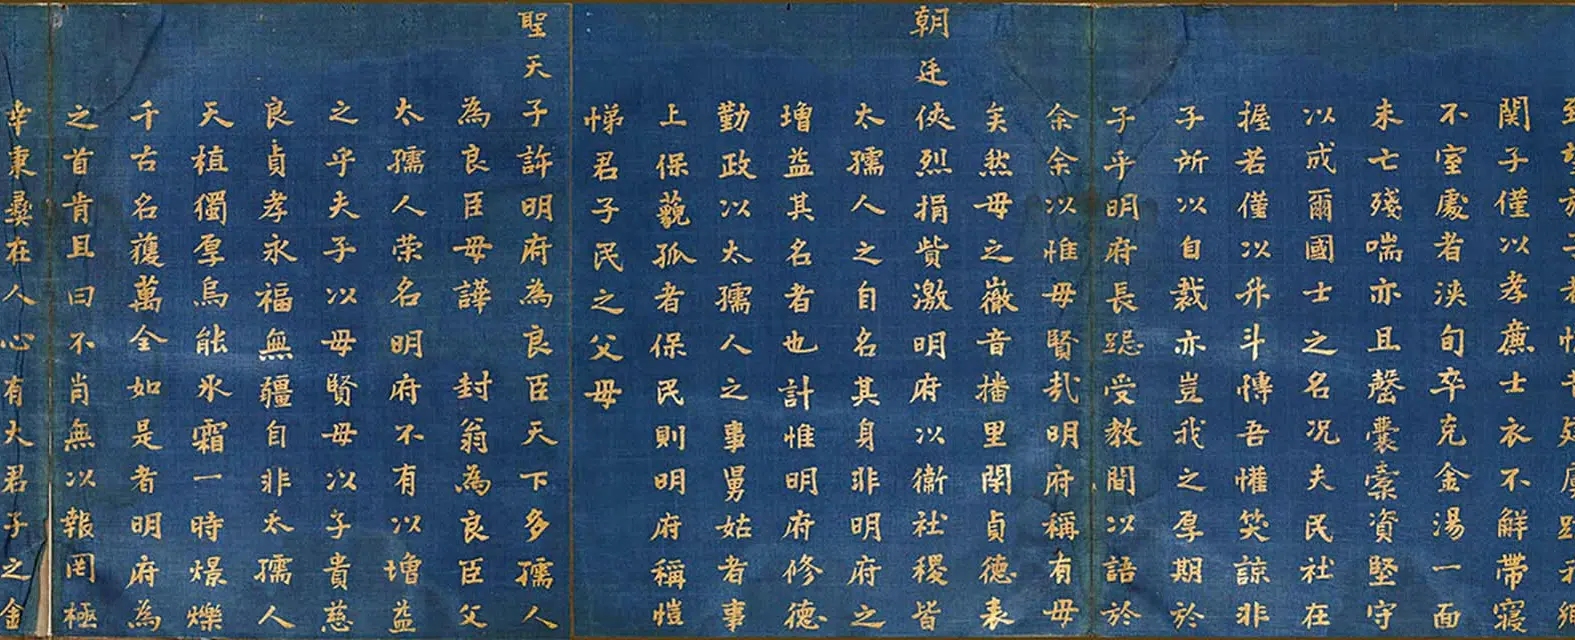 関子僅以孝廉士衣不解帶寢
不室處者浹旬卒克金湯一面
未亡殘喘亦且罄囊橐資堅守
以成爾國士之名况夫民社在
握若僅以升斗慱吾懽笑諒非
子所以自裁亦豈我之厚期於
子乎明府長跽受教間以語於
余余以惟毋賢㢤明府稱有毋
矣然毋之徽音播里閈貞德表
朝廷俠烈捐貲激明府以衞社稷皆
太孺人之自名其身非明府之
增益其名者也計惟明府修德
勤政以太孺人之事舅姑者事
上保藐孤者保民則明府稱愷
悌君子民之父母
聖天子許明府為良臣天下多孺人
為良臣母譁 封翁為良臣父
太孺人荣名明府不有以增益
之乎夫子以母賢母以子貴慈
良貞孝永福無疆自非太孺人
天植獨厚烏能氷霜一時燝爍
千古名獲萬全如是者明府為
之首肯且曰不肖無以報罔極
幸秉彝在人心有大君子之金